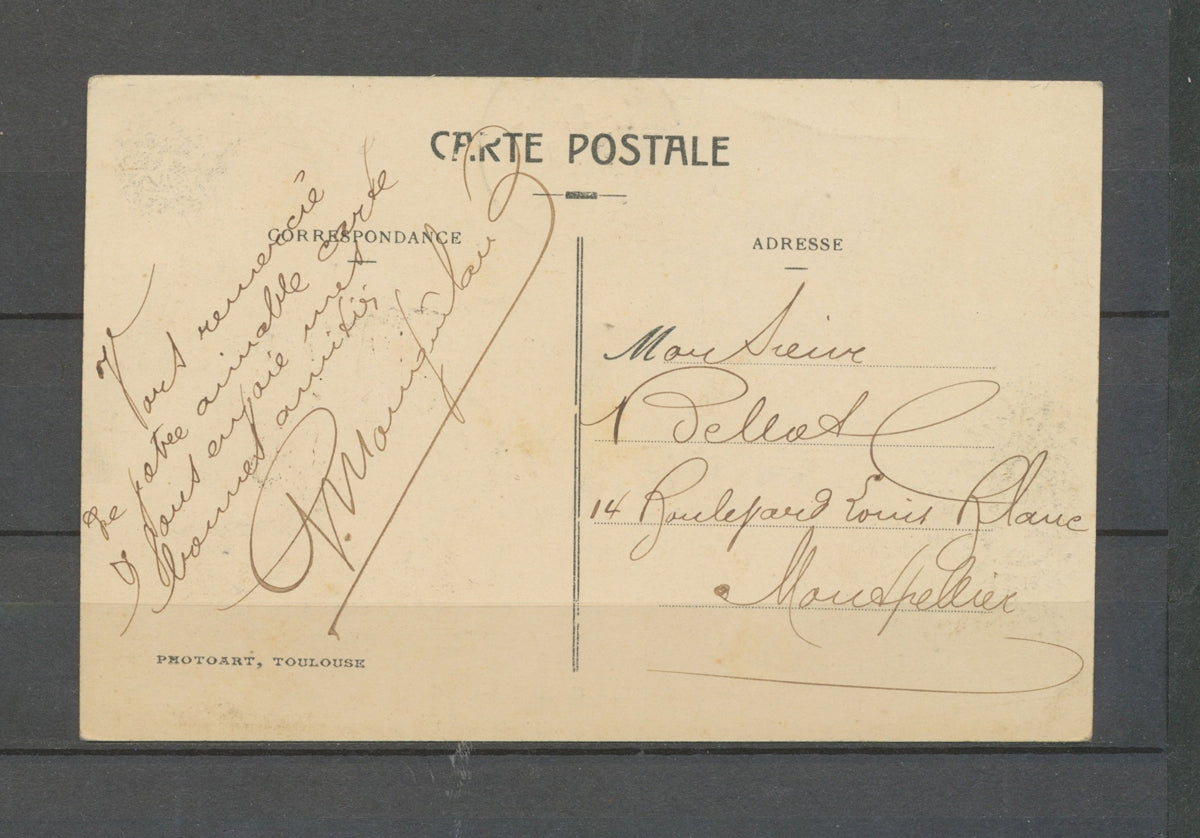 CARTE POSTALE
CORRESPONDANCE
ADRESSE
Je
vous remercie
de votre aimable carte
& vous envoie mes
bonnes amitiés
Monsieur
Bellot
14 Boulevard Louis Blanc
Montpellier
PHOTOART, TOULOUSE